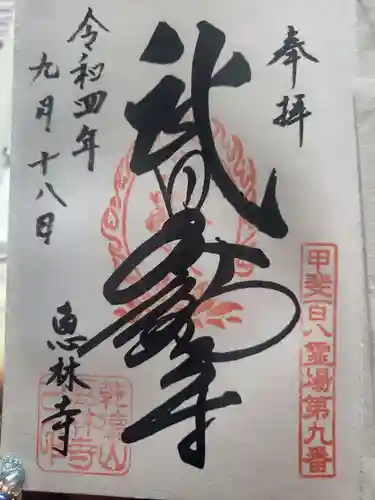 奉拝
甲斐百八霊場第九番
武田不動尊
令和四年
九月十八日
恵林寺